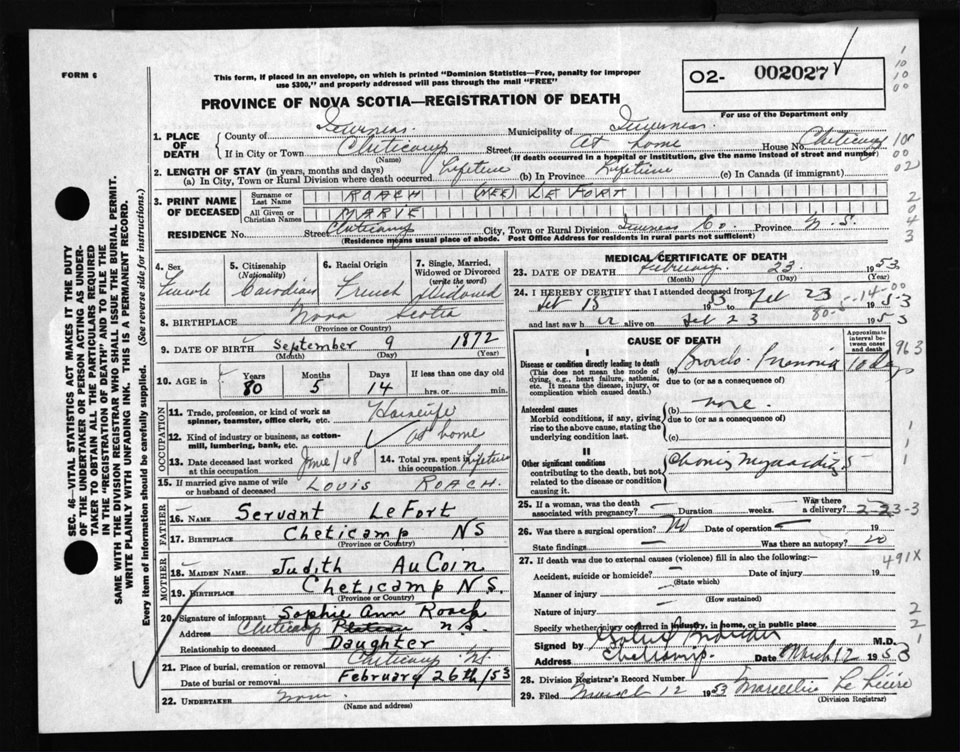 FORM 6
This form, if placed in an envelope, on which is printed "Dominion Statistics—Free, penalty for improper
use $300," and properly addressed will pass through the mail "FREE"
02- 002027
For use of the Department only
PROVINCE OF NOVA SCOTIA—REGISTRATION OF DEATH
1. PLACE OF DEATH
County of Inverness. Municipality of Inverness.
If in City or Town Cheticamp (Name) Street At home House No. Cheticamp
(If death occurred in a hospital or institution, give the name instead of street and number)
2. LENGTH OF STAY (in years, months and days)
(a) In City, Town or Rural Division where death occurred Lifetime (b) In Province Lifetime (c) In Canada (if immigrant)
3. PRINT NAME OF DECEASED
Surname or Last Name ROACH (NEE) LE FORT
All Given or Christian Names MARIE
RESIDENCE No. Street Cheticamp City, Town or Rural Division Inverness Co. Province N.S.
(Residence means usual place of abode. Post Office Address for residents in rural parts not sufficient)
SEC. 46—VITAL STATISTICS ACT MAKES IT THE DUTY
OF THE UNDERTAKER OR PERSON ACTING AS UNDER-
TAKER TO OBTAIN ALL THE PARTICULARS REQUIRED
IN THE "REGISTRATION OF DEATH" AND TO FILE THE
SAME WITH THE DIVISION REGISTRAR WHO SHALL ISSUE THE BURIAL PERMIT.
WRITE PLAINLY WITH UNFADING INK. THIS IS A PERMANENT RECORD.
Every item of information should be carefully supplied. (See reverse side for instructions.)
4. Sex Female
5. Citizenship (Nationality) Canadian
6. Racial Origin French
7. Single, Married, Widowed or Divorced (write the word) Widowed
8. BIRTHPLACE Nova Scotia
(Province or Country)
9. DATE OF BIRTH September 9 1872
(Month) (Day) (Year)
10. AGE in Years 80 Months 5 Days 14 If less than one day old hrs. or min.
OCCUPATION
11. Trade, profession, or kind of work as
spinner, teamster, office clerk, etc. Housewife
12. Kind of industry or business, as cotton-
mill, lumbering, bank, etc. At home
13. Date deceased last worked at this occupation June/48
14. Total yrs. spent in this occupation Lifetime
15. If married give name of wife or husband of deceased LOUIS ROACH.
FATHER
16. NAME Servant LeFort
17. BIRTHPLACE Cheticamp NS
(Province or Country)
MOTHER
18. MAIDEN NAME Judith AuCoin
19. BIRTHPLACE Cheticamp N.S.
(Province or Country)
20. Signature of informant Sophie Ann Roach
Address Cheticamp Plateau N.S.
Relationship to deceased Daughter
21. Place of burial, cremation or removal Cheticamp NS
Date of burial or removal February 26th/53
22. UNDERTAKER None
(Name and address)
MEDICAL CERTIFICATE OF DEATH
23. DATE OF DEATH February 23 1953
(Month) (Day) (Year)
24. I HEREBY CERTIFY that I attended deceased from:
Feb 15 1953 to Feb 23 1953
and last saw her alive on Feb 23 1953
80-5-14-00
CAUSE OF DEATH
Approximate interval between onset and death
I
Disease or condition directly leading to death
(This does not mean the mode of
dying, e.g., heart failure, asthenia,
etc. It means the disease, injury, or
complication which caused death.)
(a) Broncho-Pneumonia 10 days
due to (or as a consequence of)
Antecedent causes
Morbid conditions, if any, giving
rise to the above cause, stating the
underlying condition last.
(b) none.
due to (or as a consequence of)
(c)
II
Other significant conditions
contributing to the death, but not
related to the disease or condition
causing it.
Chronic Myocarditis 5
25. If a woman, was the death associated with pregnancy? — Duration weeks. Was there a delivery?
2-23-3
26. Was there a surgical operation? No Date of operation — 19
State findings — Was there an autopsy? no
27. If death was due to external causes (violence) fill also the following:
491X
Accident, suicide or homicide? — Date of injury 19
(State which)
Manner of injury —
(How sustained)
Nature of injury —
Specify whether injury occurred in industry, in home, or in public place
Signed by M.D.
Address Cheticamp. Date March 12 1953
28. Division Registrar's Record Number
29. Filed March 12 1953 Marcellin
(Division Registrar)